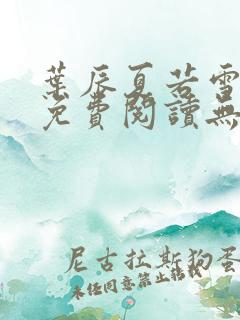 葉辰夏若雪
免費閱讀無
尼古拉斯狗蛋
未經同意禁止轉載